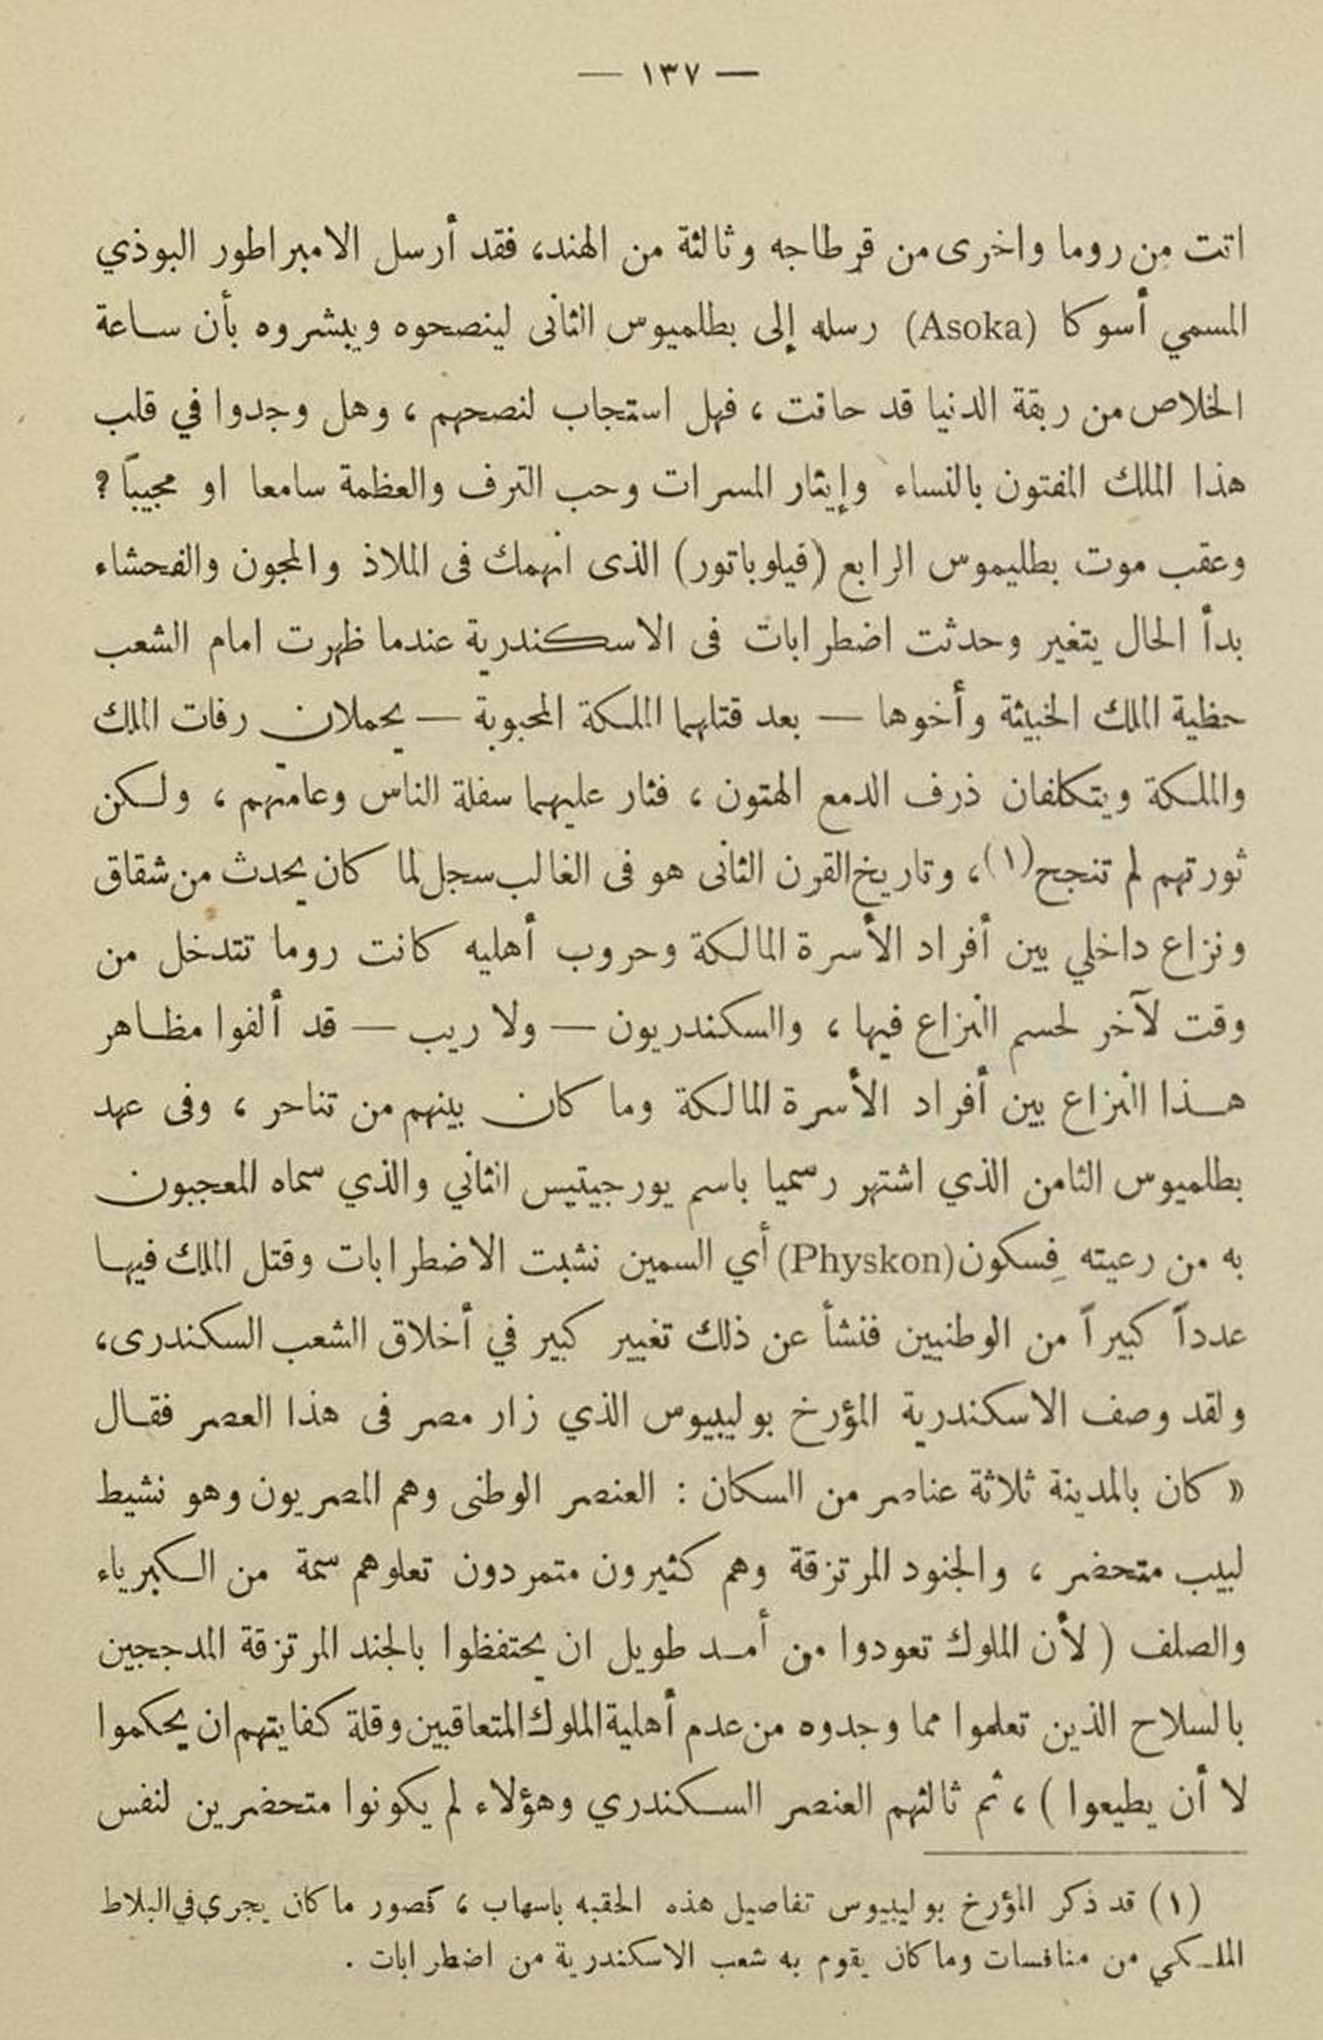 — ١٣٧ —
اتت من روما واخرى من قرطاجه وثالثة من الهند، فقد أرسل الامبراطور البوذي
المسمي أسوكا (Asoka) رسله إلى بطلميوس الثانى لينصحوه ويبشروه بأن ساعة
الخلاص من ربقة الدنيا قد حانت ، فهل استجاب لنصحهم ، وهل وجدوا في قلب
هذا الملك المفتون بالنساء وإيثار المسرات وحب الترف والعظمة سامعا او مجيباً ؟
وعقب موت بطليموس الرابع (فيلوباتور) الذى انهمك فى الملاذ والمجون والفحشاء
بدأ الحال يتغير وحدثت اضطرابات فى الاسكندرية عندما ظهرت امام الشعب
حظية الملك الخبيثة وأخوها — بعد قتلهما الملكة المحبوبة — يحملان رفات الملك
والملكة ويتكلفان ذرف الدمع الهتون ، فثار عليهما سفلة الناس وعامتهم ، ولكن
ثورتهم لم تنجح(١)، وتاريخ القرن الثانى هو فى الغالب سجل لما كان يحدث من شقاق
ونزاع داخلي بين أفراد الأسرة المالكة وحروب أهليه كانت روما تتدخل من
وقت لآخر لحسم النزاع فيها ، والسكندريون — ولا ريب — قد ألفوا مظاهر
هذا النزاع بين أفراد الأسرة المالكة وما كان بينهم من تناحر ، وفى عهد
بطلميوس الثامن الذي اشتهر رسميا باسم يورجيتيس الثاني والذي سماه المعجبون
به من رعيته فِسكون (Physkon) أي السمين نشبت الاضطرابات وقتل الملك فيها
عدداً كبيراً من الوطنيين فنشأ عن ذلك تغيير كبير في أخلاق الشعب السكندرى،
ولقد وصف الاسكندرية المؤرخ بوليبيوس الذي زار مصر فى هذا العصر فقال
« كان بالمدينة ثلاثة عناصر من السكان : العنصر الوطنى وهم المصريون وهو نشيط
لبيب متحضر ، والجنود المرتزقة وهم كثيرون متمردون تعلوهم سمة من الكبرياء
والصلف ( لأن الملوك تعودوا من أمد طويل ان يحتفظوا بالجند المرتزقة المدججين
بالسلاح الذين تعلموا مما وجدوه من عدم أهلية الملوك المتعاقبين وقلة كفايتهم ان يحكموا
لا أن يطيعوا ) ، ثم ثالثهم العنصر السكندري وهؤلاء لم يكونوا متحضرين لنفس
(١) قد ذكر المؤرخ بوليبيوس تفاصيل هذه الحقبه باسهاب ، فصور ما كان يجري في البلاط
الملكي من منافسات وما كان يقوم به شعب الاسكندرية من اضطرابات .